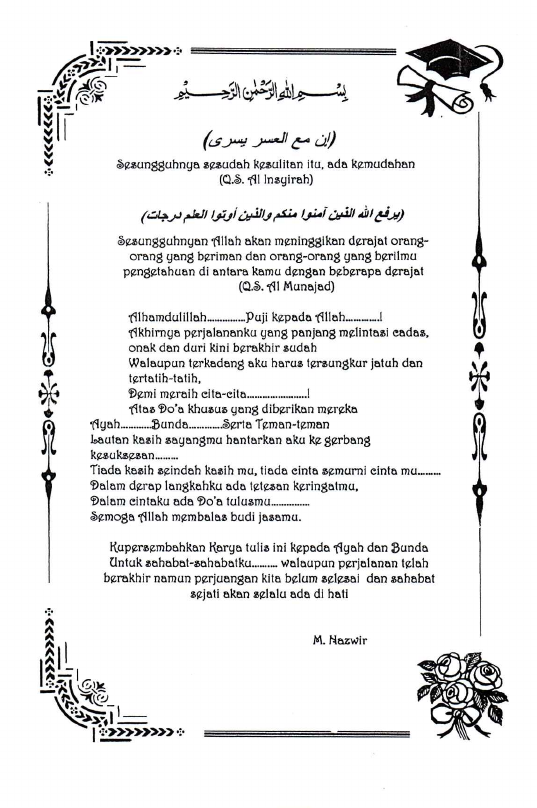 بِسْمِ اللهِ الرَّحْمٰنِ الرَّحِيْمِ
(إن مع العسر يسرى)
Sesungguhnya sesudah kesulitan itu, ada kemudahan
(Q.S. Al Insyirah)
(يرفع الله الذين آمنوا منكم والذين أوتوا العلم درجات)
Sesungguhnyan Allah akan meninggikan derajat orang-
orang yang beriman dan orang-orang yang berilmu
pengetahuan di antara kamu dengan beberapa derajat
(Q.S. Al Munajad)
Alhamdulillah...............Puji kepada Allah.............!
Akhirnya perjalananku yang panjang melintasi cadas,
onak dan duri kini berakhir sudah
Walaupun terkadang aku harus tersungkur jatuh dan
tertatih-tatih,
Demi meraih cita-cita.......................!
Atas Do'a khusus yang diberikan mereka
Ayah............Bunda.............Serta Teman-teman
Lautan kasih sayangmu hantarkan aku ke gerbang
kesuksesan.........
Tiada kasih seindah kasih mu, tiada cinta semurni cinta mu.........
Dalam derap langkahku ada tetesan keringatmu,
Dalam cintaku ada Do'a tulusmu...............
Semoga Allah membalas budi jasamu.
Kupersembahkan Karya tulis ini kepada Ayah dan Bunda
Untuk sahabat-sahabatku.......... walaupun perjalanan telah
berakhir namun perjuangan kita belum selesai dan sahabat
sejati akan selalu ada di hati
M. Nazwir